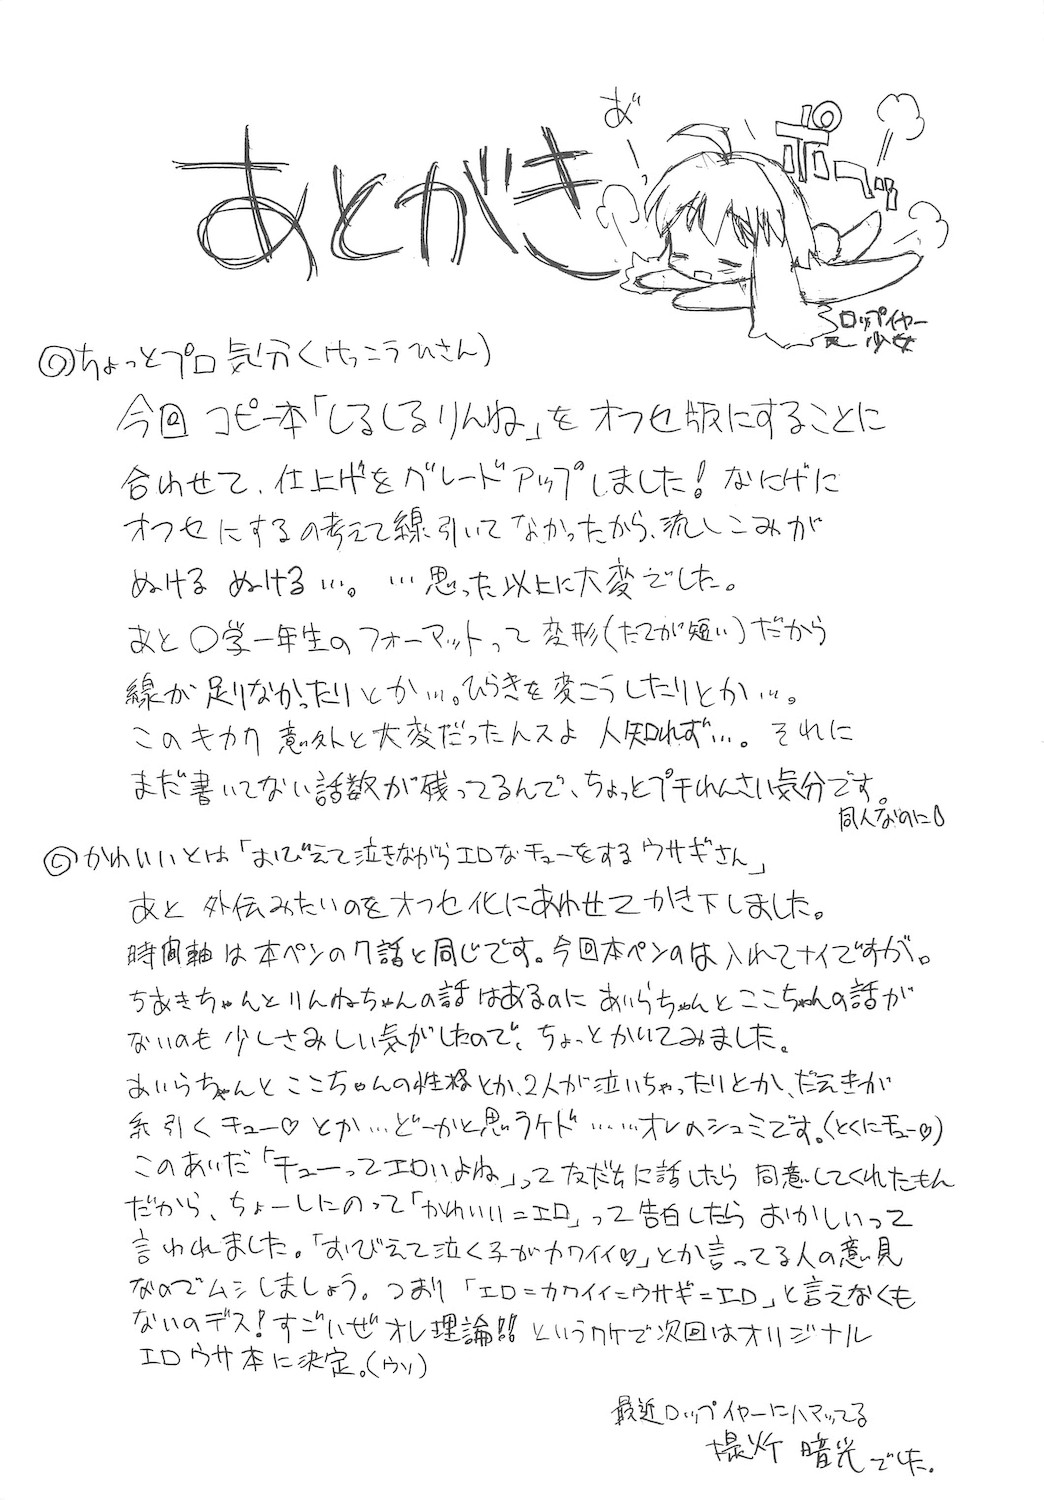 あとがき
あ゛
ポペッ
ロップイヤー
少女
◎ちょっとプロ気分(けっこうひさん)
今回 コピー本「しるしるりんね」を オフセ版にすることに
合わせて、仕上げをグレードアップしました! なにげに
オフセにするの考えて線引いて なかったから、流しこみが
ぬける ぬける…。 …思った以上に大変でした。
あと 〇学一年生のフォーマットって 変形(たてが短い)だから
線が足りなかったりとか…。ひらきを変こうしたりとか…。
このキカク 意外と大変だったんスよ 人知れず…。 それに
まだ書いてない話数が残ってるんで、ちょっとプチれんさい気分です。
同人なのに
◎かわいいとは「おびえて泣きながらエロなチューをするウサギさん」
あと 外伝みたいのをオフセ化にあわせてかき下しました。
時間軸は本ペンの7話と同じです。今回本ペンのは入れてナイですが。
ちあきちゃんとりんねちゃんの話はあるのに あいらちゃんとここちゃんの話が
ないのも 少しさみしい気がしたので、ちょっとかいてみました。
あいらちゃんとここちゃんの性格とか、2人が泣いちゃったりとか、だえきが
糸引くチュー♡ とか…どーかと思うケド……オレのシュミです。(とくにチュー♡)
このあいだ「チューってエロいよね」って友だちに話したら 同意してくれたもん
だから、ちょーしにのって「かわいい=エロ」って告白したら おかしいって
言われました。「おびえて泣く子がカワイイ♡」とか言ってる人の意見
なのでムシしましょう。 つまり「エロ=カワイイ=ウサギ=エロ」と言えなくも
ないのデス! すごいぜオレ理論!! というワケで次回はオリジナル
エロウサ本に決定。(ウソ)
最近ロップイヤーにハマッてる
暗光でした。